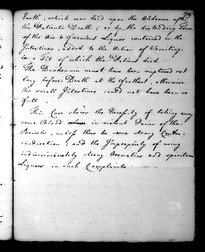 Earth, which was laid upon the Abdomen after
the Patient's Death; or by the distending Force
of the Air & Fluid Liquor contained in the
Intestines, added to the Action of Vomiting,
in a Fit of which the Patient died.
The Duodenum must have been ruptured not
long before Death at the farthest, otherwise
the small Intestines could not have been so
full.
This Case shows the Necessity of taking away
some Blood in violent Pains of the
Stomachs, unless there be some strong Contra-
indication, and the Impropriety of using
indiscriminately strong Aromatics and spirituous
Liquors in such Complaints.